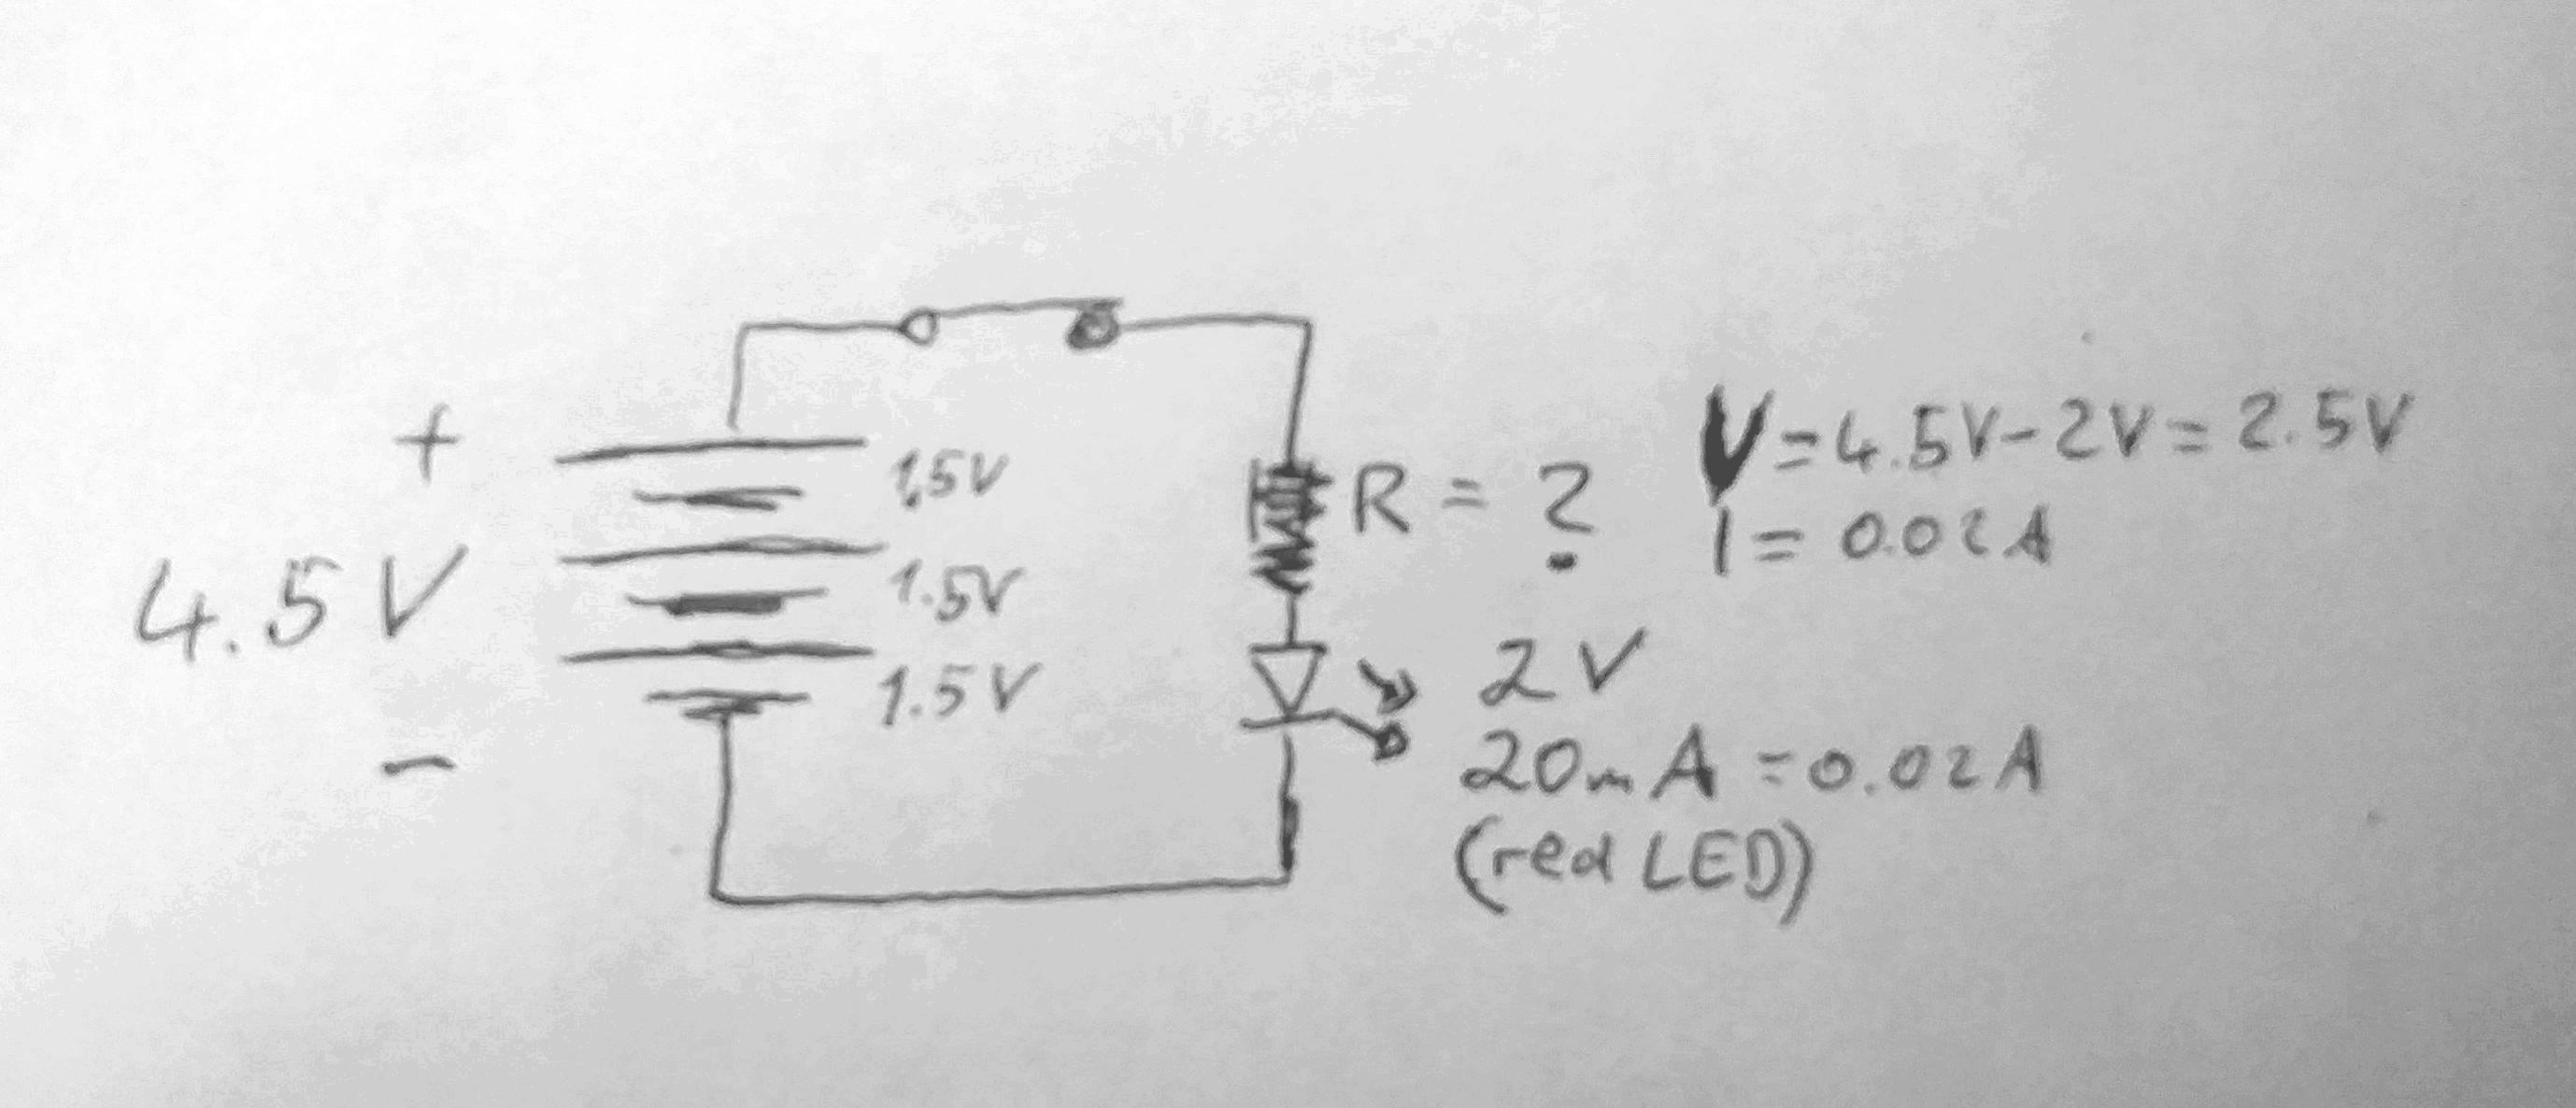 +
4.5 V
-
1.5V
1.5V
1.5V
R = ?
V=4.5V-2V=2.5V
I = 0.02A
2V
20mA=0.02A
(red LED)